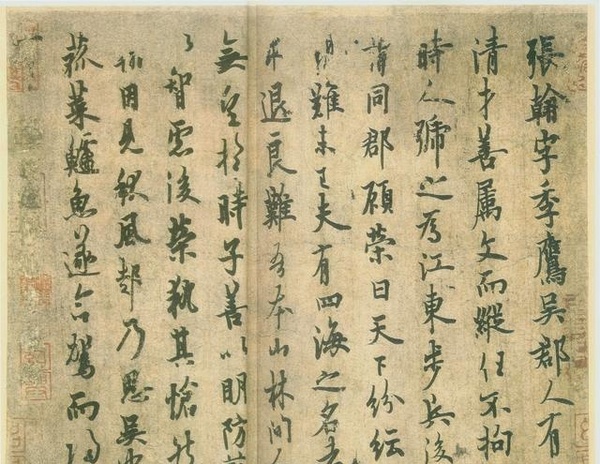 張翰字季鷹吳郡人有
清才善属文而縱任不拘
時人號之為江東步兵後
同郡顧榮曰天下紛紜
難未已夫有四海之名者
求退良難吾本山林間人
無望於時子善以明防前
以智慮後榮執其愴然
翰因見秋風起乃思吳
菰菜鱸魚遂命駕而